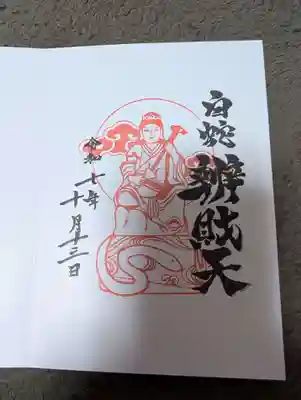 白蛇辨財天
令和七年
十月十三日